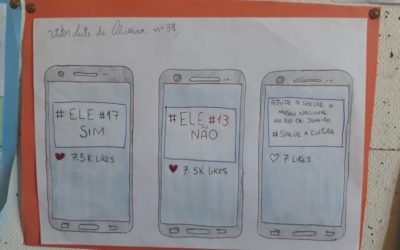 Vitor Leite de Oliveira nº 38
# ELE #17
SIM
7.5K LIKES
# ELE #13
NÃO
7.5K LIKES
AJUDE A SALVAR O
MUSEU NACIONAL
NO RIO DE JANEIRO
#SALVE A CULTURA
7 LIKES